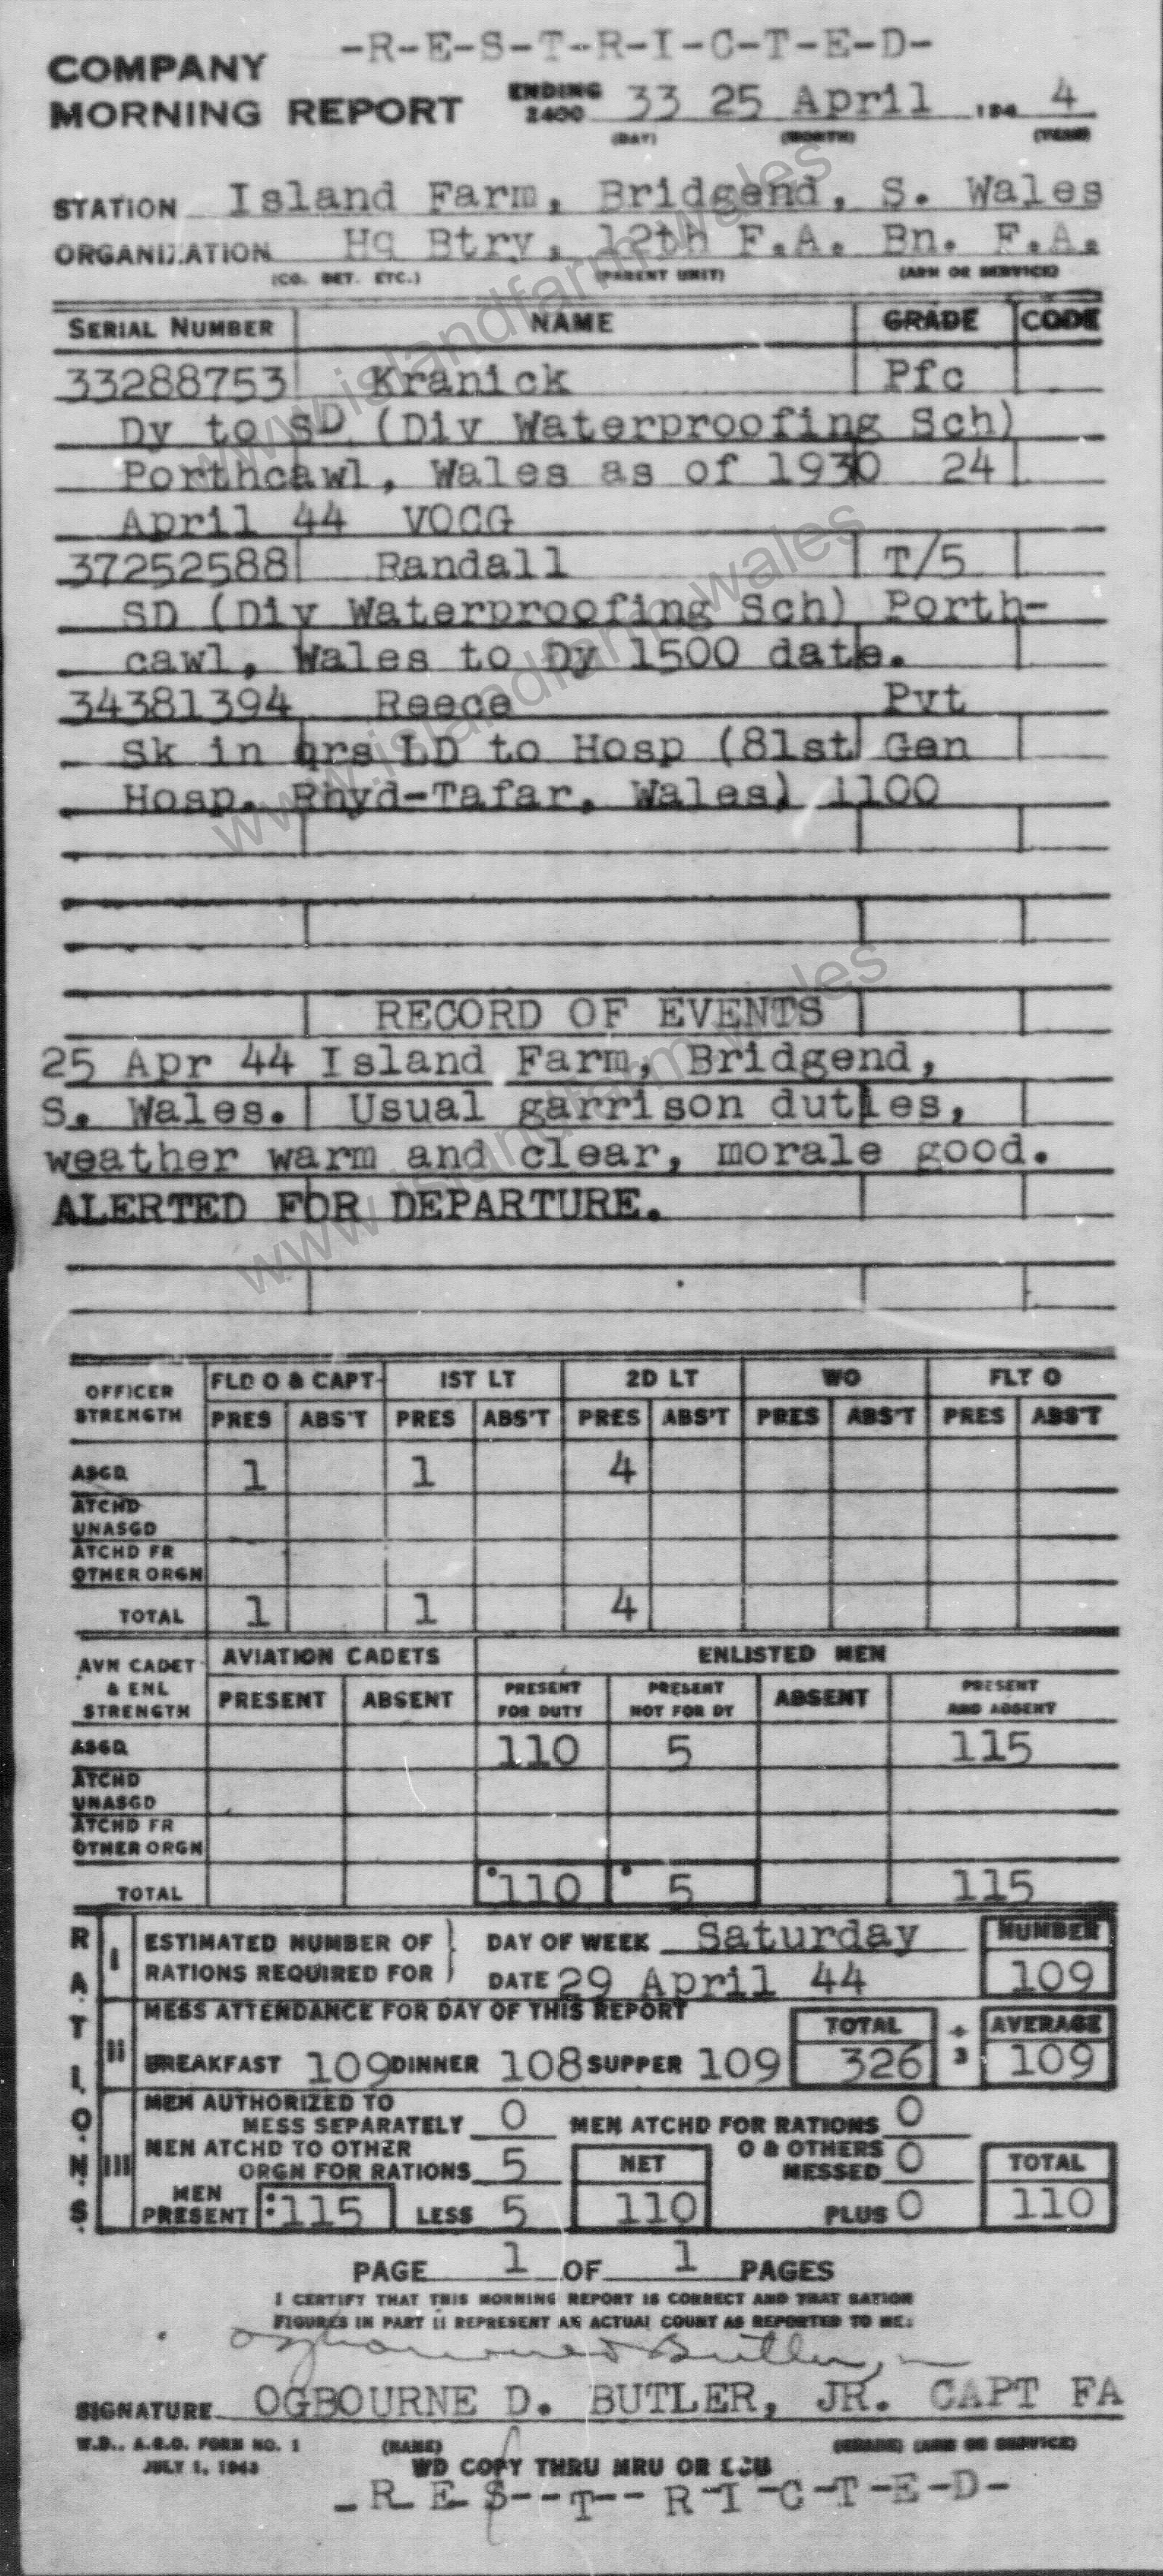 -R-E-S-T-R-I-C-T-E-D-
COMPANY
MORNING REPORT ENDING 2400 33 25 April 194 4
(DAY) (MONTH) (YEAR)
STATION Island Farm, Bridgend, S. Wales
ORGANIZATION Hq Btry, 12th F.A. Bn. F.A.
(CO. DET. ETC.) (PARENT UNIT) (ARM OR SERVICE)
SERIAL NUMBER NAME GRADE CODE
33288753 Kranick Pfc
Dy to SD (Div Waterproofing Sch)
Porthcawl, Wales as of 1930 24
April 44 VOCG
37252588 Randall T/5
SD (Div Waterproofing Sch) Porth-
cawl, Wales to Dy 1500 date.
34381394 Reece Pvt
Sk in qrs LD to Hosp (81st Gen
Hosp. Rhyd-Tafar, Wales) 1100
RECORD OF EVENTS
25 Apr 44 Island Farm, Bridgend,
S. Wales. Usual garrison duties,
weather warm and clear, morale good.
ALERTED FOR DEPARTURE.
OFFICER STRENGTH FLD O & CAPT 1ST LT 2D LT WO FLT O
PRES ABS'T PRES ABS'T PRES ABS'T PRES ABS'T PRES ABS'T
ASGD 1 1 4
ATCHD UNASGD
ATCHD FR OTHER ORGN
TOTAL 1 1 4
AVN CADET & ENL STRENGTH AVIATION CADETS ENLISTED MEN
PRESENT ABSENT PRESENT FOR DUTY PRESENT NOT FOR DY ABSENT PRESENT AND ABSENT
ASGD 110 5 115
ATCHD UNASGD
ATCHD FR OTHER ORGN
TOTAL 110 5 115
RATIONS
I ESTIMATED NUMBER OF RATIONS REQUIRED FOR DAY OF WEEK Saturday NUMBER
DATE 29 April 44 109
II MESS ATTENDANCE FOR DAY OF THIS REPORT TOTAL ÷ 3 AVERAGE
BREAKFAST 109 DINNER 108 SUPPER 109 326 109
III MEN AUTHORIZED TO MESS SEPARATELY 0 MEN ATCHD FOR RATIONS 0
MEN ATCHD TO OTHER ORGN FOR RATIONS 5 NET O & OTHERS MESSED 0 TOTAL
MEN PRESENT 115 LESS 5 110 PLUS 0 110
PAGE 1 OF 1 PAGES
I CERTIFY THAT THIS MORNING REPORT IS CORRECT AND THAT RATION
FIGURES IN PART II REPRESENT AN ACTUAL COUNT AS REPORTED TO ME:
Ogbourne D Butler, Jr
SIGNATURE OGBOURNE D. BUTLER, JR. CAPT FA
W.D., A.G.O. FORM NO. 1 (NAME) (GRADE) (ARM OR SERVICE)
JULY 1, 1943 WD COPY THRU MRU OR
-R-E-S--T--R-I-C-T-E-D-
www.islandfarm.wales
www.islandfarm.wales
www.islandfarm.wales